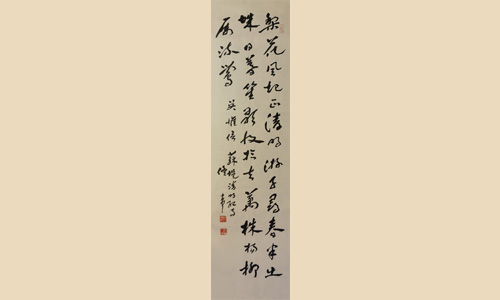 梨花風起正清明游子尋春半出
城日暮笙歌收拾去萬株楊柳
屬流鶯
吳惟信 蘇堤清明即事